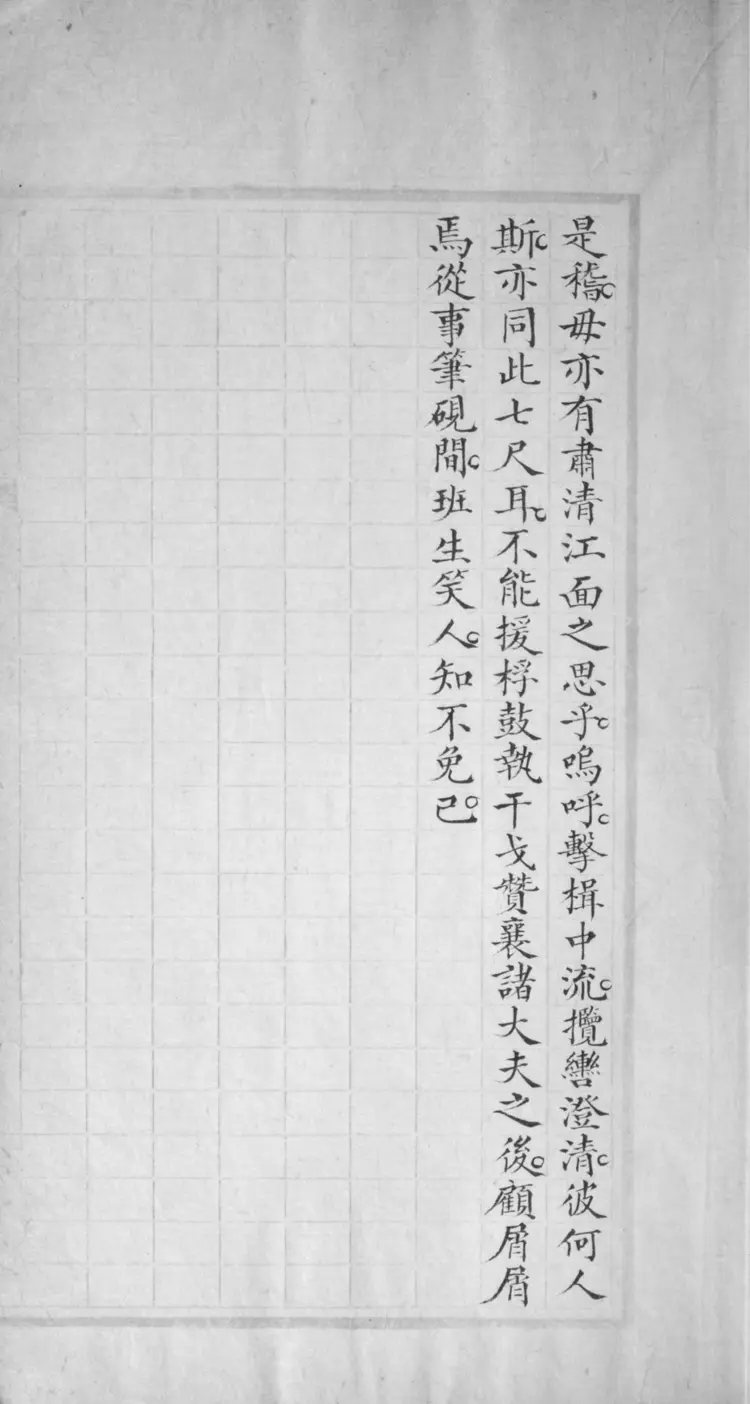 是稽。毋亦有肅清江面之思乎。嗚呼。擊楫中流。攬轡澄清。彼何人
斯。亦同此七尺耳。不能援桴鼓執干戈贊襄諸大夫之後。顧屑屑
焉從事筆硯間。班生笑人。知不免已。